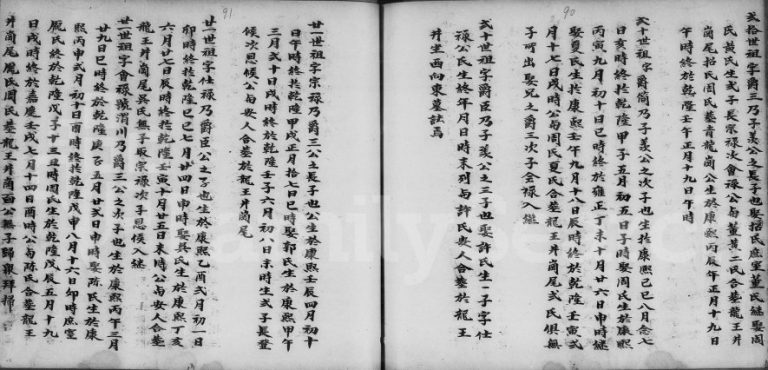 90
弍拾世祖字爵三乃子義公之長子也娶招氏庶室董氏継娶周
氏黃氏生弍子長宗禄次會禄公甸董黃二氏合塟龍王井
崗尾招氏周氏塟青龍崗公生於康熙丙辰年正月十九日
午時終於乾隆壬午正月十九日午時
弍十世祖字爵簡乃子義公之次子也生扵康熙己巳八月念七
日亥時終扵乾隆甲子五月初五日子時娶周氏生於康熙
丙寅九月初十日巳時終於雍正丁未十月廿六日申時継
娶夏氏生扵康熙壬午九月十八日辰時終於乾隆壬寅弍
月十七日戌時公甸周氏夏氏合塟龍王井崗尾弍氏俱無
子所出娶兄之爵三次子會禄入継
弍十世祖字爵臣乃子義公之三子也娶許氏生一子字仕
禄公氏生終年月日時未列甸許氏安人合塟於龍王
井坐西向東墓誌焉
91
廿一世祖字宗禄乃爵三公之長子也公生於康熙壬辰四月初十
日午時終扵乾隆甲戌正月拾七日巳時娶郭氏生於康熙甲午
三月弍十日戌時終於乾隆壬子六月初八日未時生弍子長登
候次恩候公甸安人合塟於龍王井崗尾
廿一世祖字仕禄乃爵臣公之子也生於康熙乙酉弍月初一日
卯時終扵乾隆己巳七月廿四日申時娶吳氏生於康熙丁亥
六月廿七日辰時終扵乾隆壬寅十月廿五日未時公甸安人合塟
龍王井崗尾吳氏無子取宗禄次子恩候入継
廿一世祖字會禄號渭川乃爵三公之次子也生於康熙丙午三月
廿九日巳時終於乾隆庚子五月廿弍日申時娶陈氏生於康
熙丙申弍月初十日酉時終扵乾隆戊申八月十六日卯時庶室
龎氏終於乾隆戊子十三丑時周氏生於乾隆戊辰五月十九
日戌時終於嘉慶壬戌七月十四日酉時公甸陈氏合塟龍王
井崗尾龎氏周氏塟龍王井崗面公無子歸親拜掃